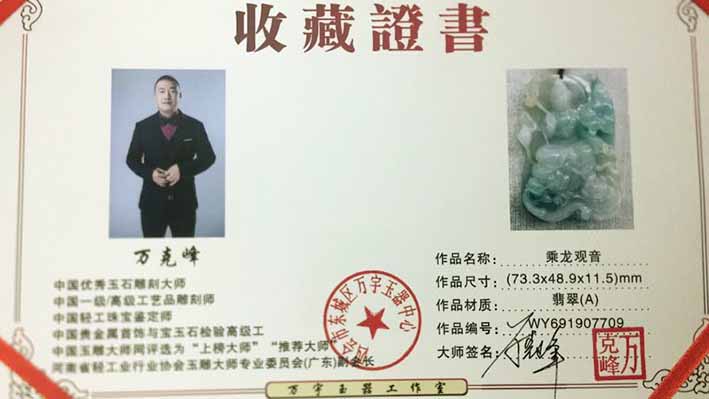 收藏證書
万克峰
中国优秀玉石雕刻大师
中国一级/高级工艺品雕刻师
中国轻工珠宝鉴定师
中国贵金属首饰与宝玉石检验高级工
中国玉雕大师网评选为“上榜大师”“推荐大师”
河南省轻工业行业协会玉雕大师专业委员会(广东)副会长
作品名称: 乘龙观音
作品尺寸: (73.3x48.9x11.5)mm
作品材质: 翡翠(A)
作品编号: WY691907709
大师签名:
万克峰
市东城区万宇玉器中心
万宇玉器工作室